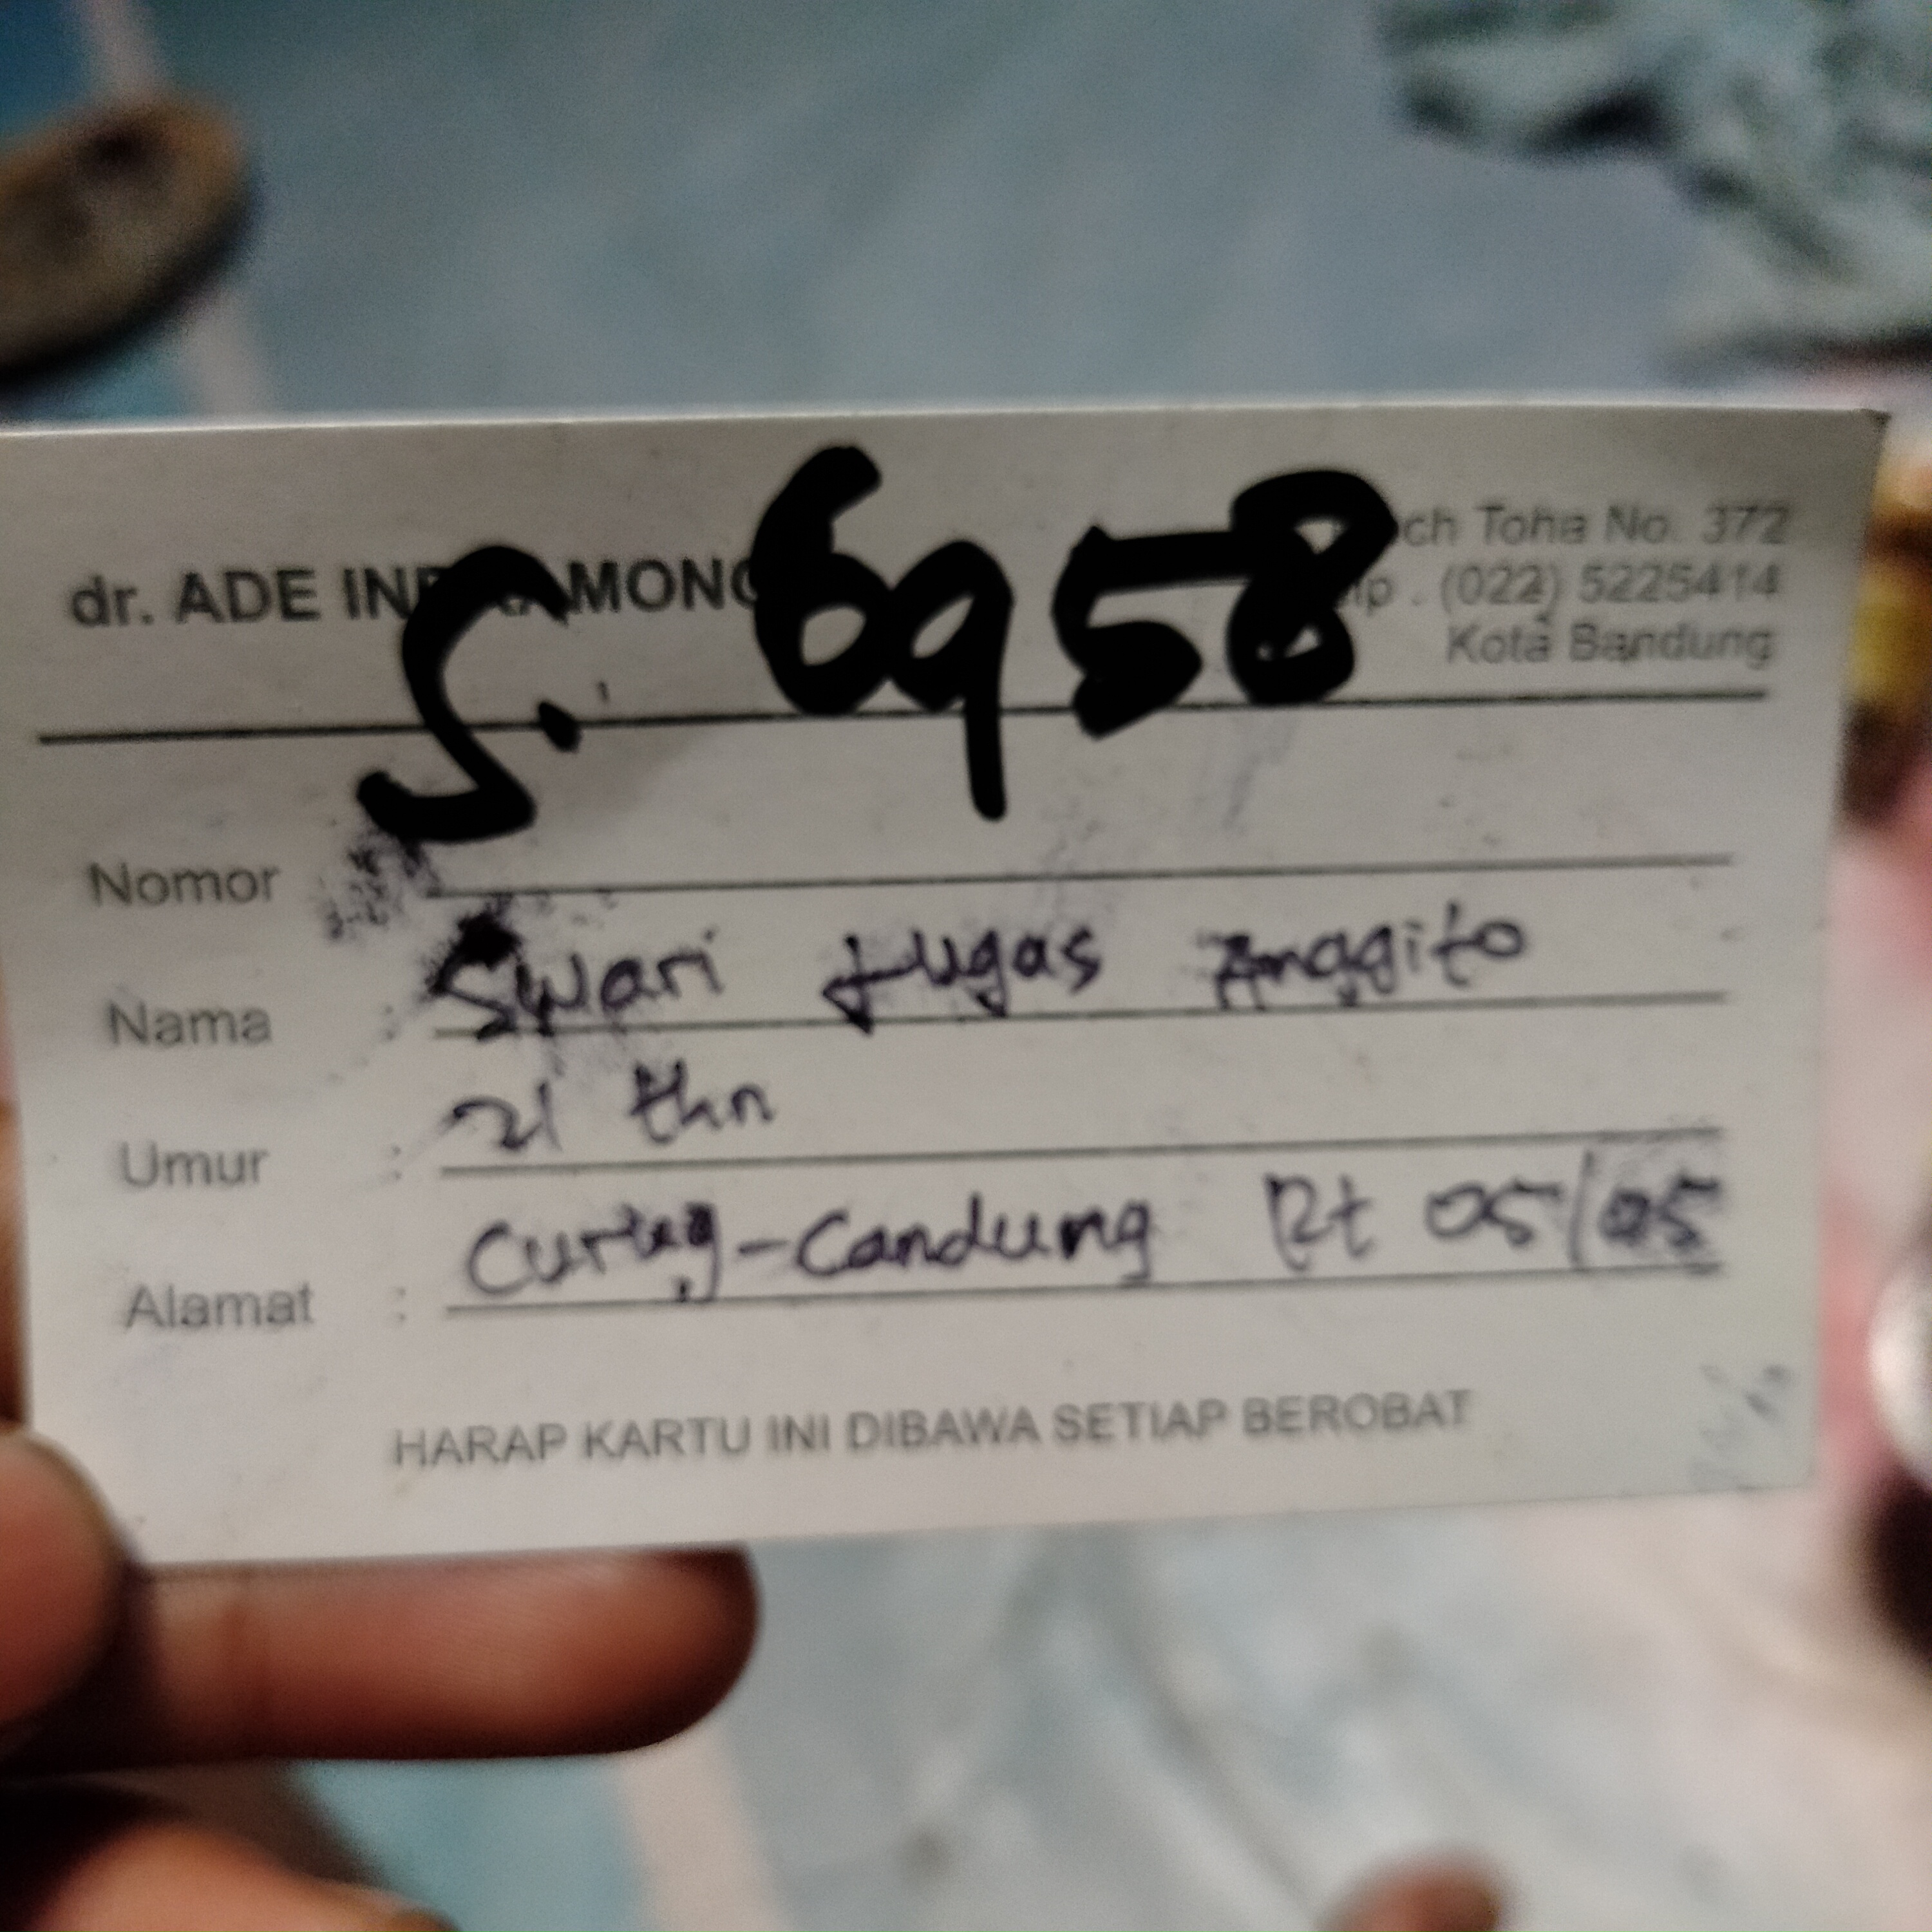 S. 6958
dr. ADE
Toha No. 372
(022) 5225414
Kota Bandung
Nomor
Nama : Swari tugas Anggito
Umur : 21 thn
Alamat : Curug-Candung Rt 05/05
HARAP KARTU INI DIBAWA SETIAP BEROBAT